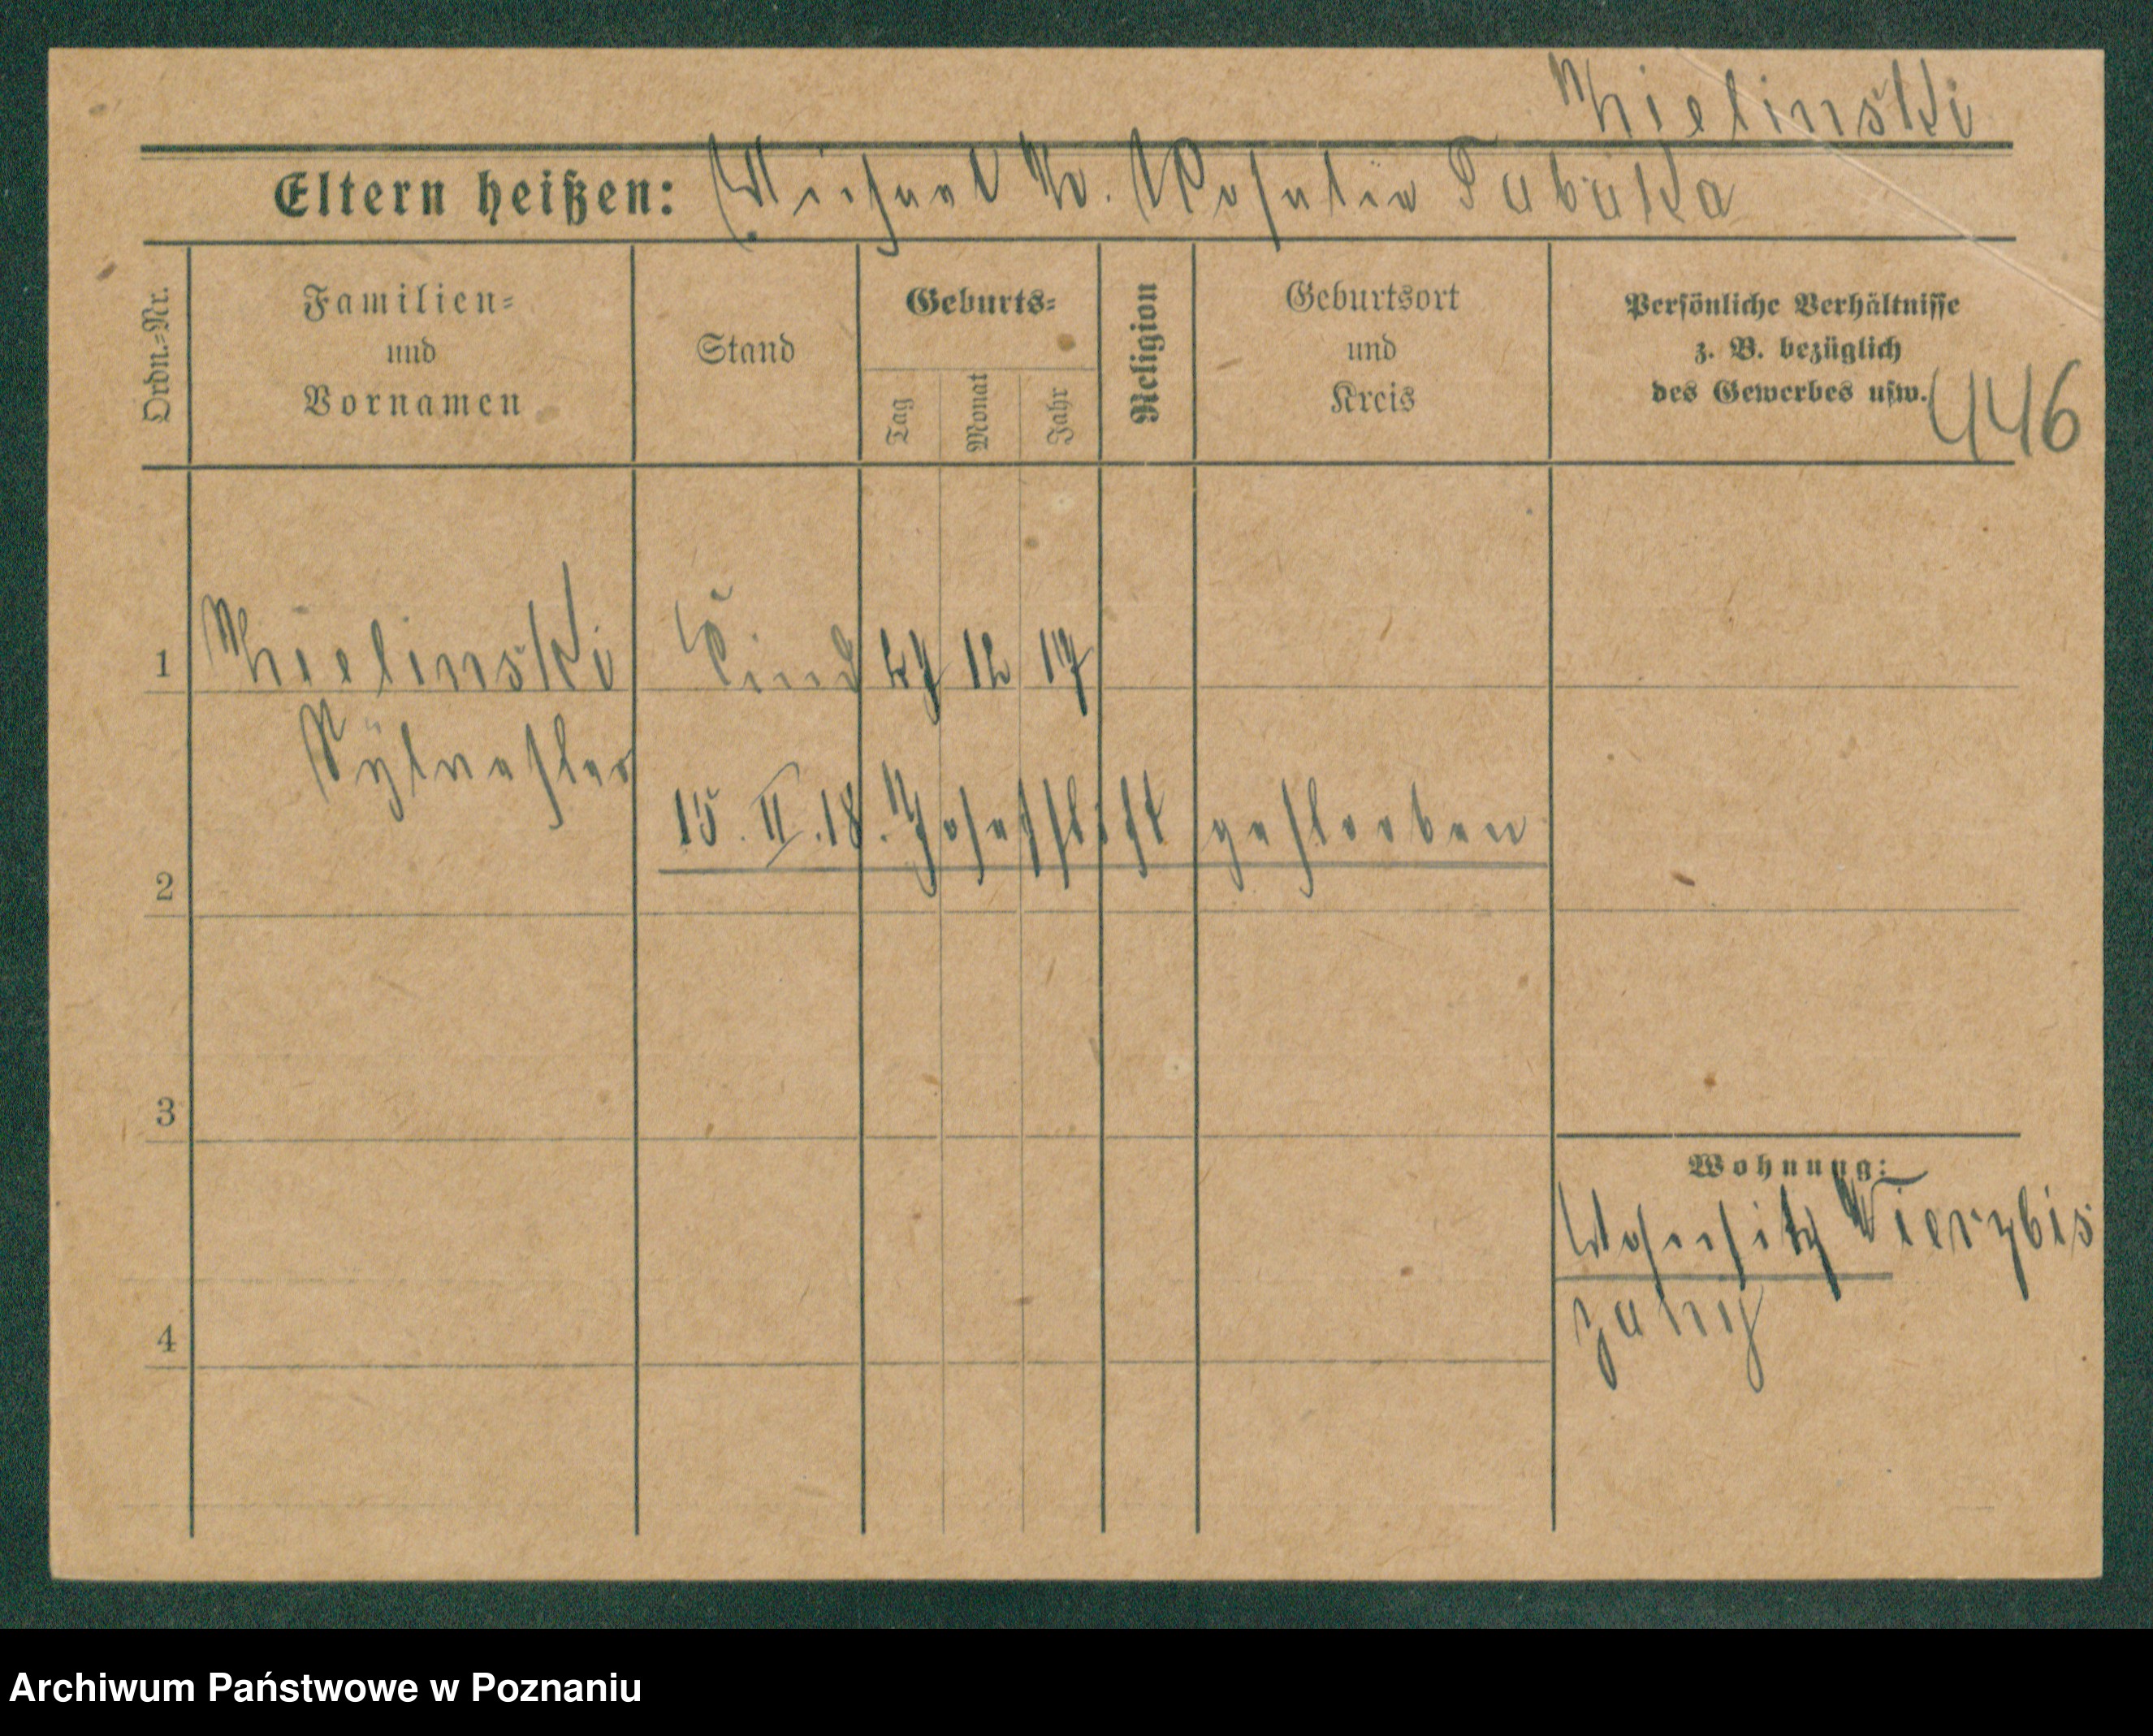 Mielinski
Eltern heißen: Michael M. Rosalie Tabaka
Ordn.-Nr.
Familien-
und
Vornamen
Stand
Geburts-
Tag
Monat
Jahr
Religion
Geburtsort
und
Kreis
Persönliche Verhältnisse
z. B. bezüglich
des Gewerbes usw.
446
1 Mielinski Kind 27 12 17
Sylvester
15. II. 18. Josefstift gestorben
2
3
Wohnung:
Wohnsitz Wierzbis
zany
4
Archiwum Państwowe w Poznaniu